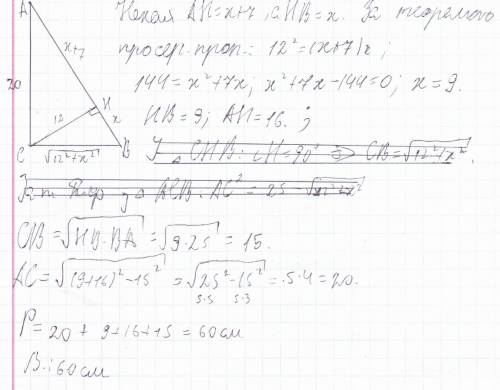 A
x+7
20
12
H
x
C
√12²+x²
B
Нехай AH=x+7, а HB=x. За теоремою
просер. проп.: 12²=(x+7)x;
144=x²+7x; x²+7x-144=0; x=9.
HB=9; AH=16. ;
△CHB: ∠H=90° ⇒ CB=√12²+x².
CB=√HB·BA=√9·25=15.
AC=√(9+16)²-15²=√25²-15²=5·4=20.
5·5 5·3
P=20+9+16+15=60см
В.: 60см